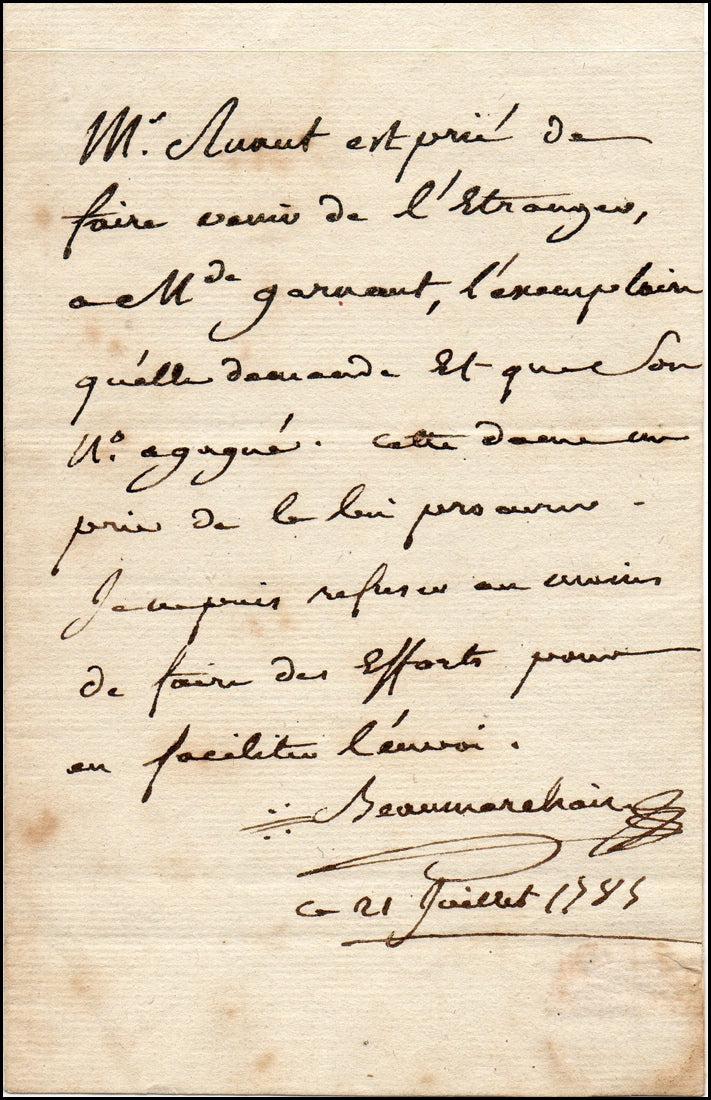 Mr. Ruaut est prié de
faire venir de l'Etranger,
a Mde garnaut, l'exemplaire
qu'elle demande Et que Son
N.º a gagné. Cette dame me
prie de le lui procurer.
Je ne puis refuser au moins
de faire des Efforts pour
en faciliter l'énvoi.
Beaumarchais
ce 21 Juillet 1785